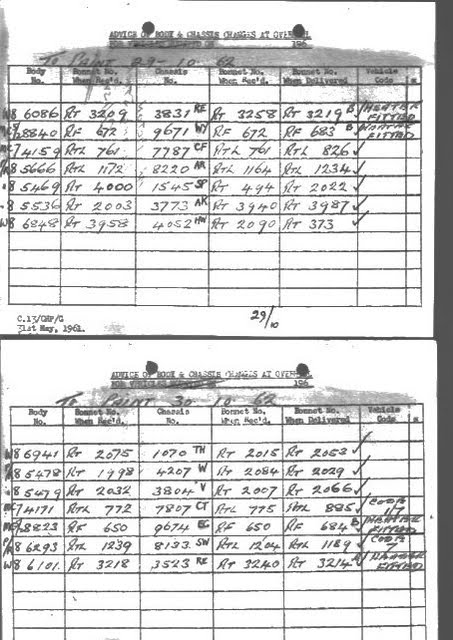 ADVICE OF BODY & CHASSIS CHANGES AT OVERHAUL
FOR VEHICLES 196
To PAINT 29-10-62
Body No. Bonnet No. When Rec'd. Chassis No. Bonnet No. When Rec'd. Bonnet No. When Delivered Vehicle Code
W8 6086 RT 3209 3831 RE RT 3258 RT 3219 B/HEATER FITTED
8840 RF 672 9671 WY RF 672 RF 683 B FITTED
4159 RTL 761 7787 CF RTL 761 RTL 826 ✓
8 5666 RTL 1172 8220 AR RTL 1164 RTL 1234 ✓
8 5469 RT 4000 1545 SP RT 494 RT 2022 ✓
8 5536 RT 2003 3773 AK RT 3940 RT 3987 ✓
W8 6848 RT 3958 4052 HW RT 2090 RT 373 ✓
C.13/GHF/G
31st May, 1961.
29/10
ADVICE OF BODY & CHASSIS CHANGES AT OVERHAUL
FOR VEHICLES 196
To PAINT 30-10-62
Body No. Bonnet No. When Rec'd. Chassis No. Bonnet No. When Rec'd. Bonnet No. When Delivered Vehicle Code
W8 6941 RT 2075 1070 TH RT 2015 RT 2053 ✓
8 5478 RT 1998 4207 W RT 2084 RT 2029 ✓
8 5479 RT 2032 3804 V RT 2007 RT 2066 ✓
4171 RTL 772 7807 CT RTL 775 RTL 885 ✓ CODE
8823 RF 650 9674 RF 650 RF 684 B/HEATER FITTED
8 6293 RTL 1239 8133 SW RTL 1204 RTL 1189 ✓ CODE
W8 6101 RT 3218 3523 RE RT 3240 RT 3214 HEATER FITTED